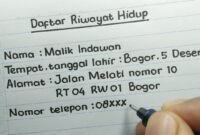 Daftar Riwayat Hidup
Nama : Malik Indawan
Tempat, tanggal lahir : Bogor, 5 Desem
Alamat : Jalan Melati nomor 10
RT 04 RW 01 Bogor
Nomor telepon : 08xxx